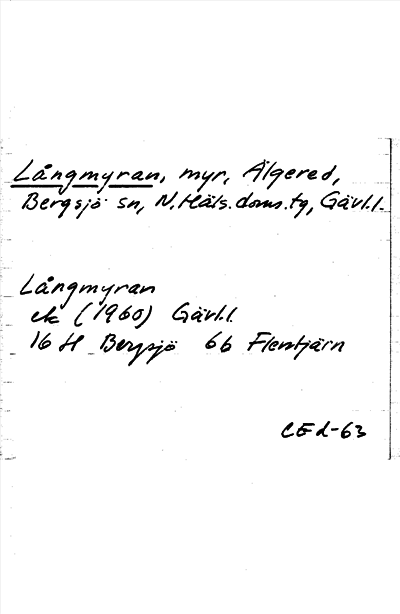 Långmyran, myr, Älgered,
Bergsjö sn, N. Häls. doms. tg, Gävl.l.
Långmyran
ek (1960) Gävl.l.
16 H Bergsjö 6b Flentjärn
CEd-63